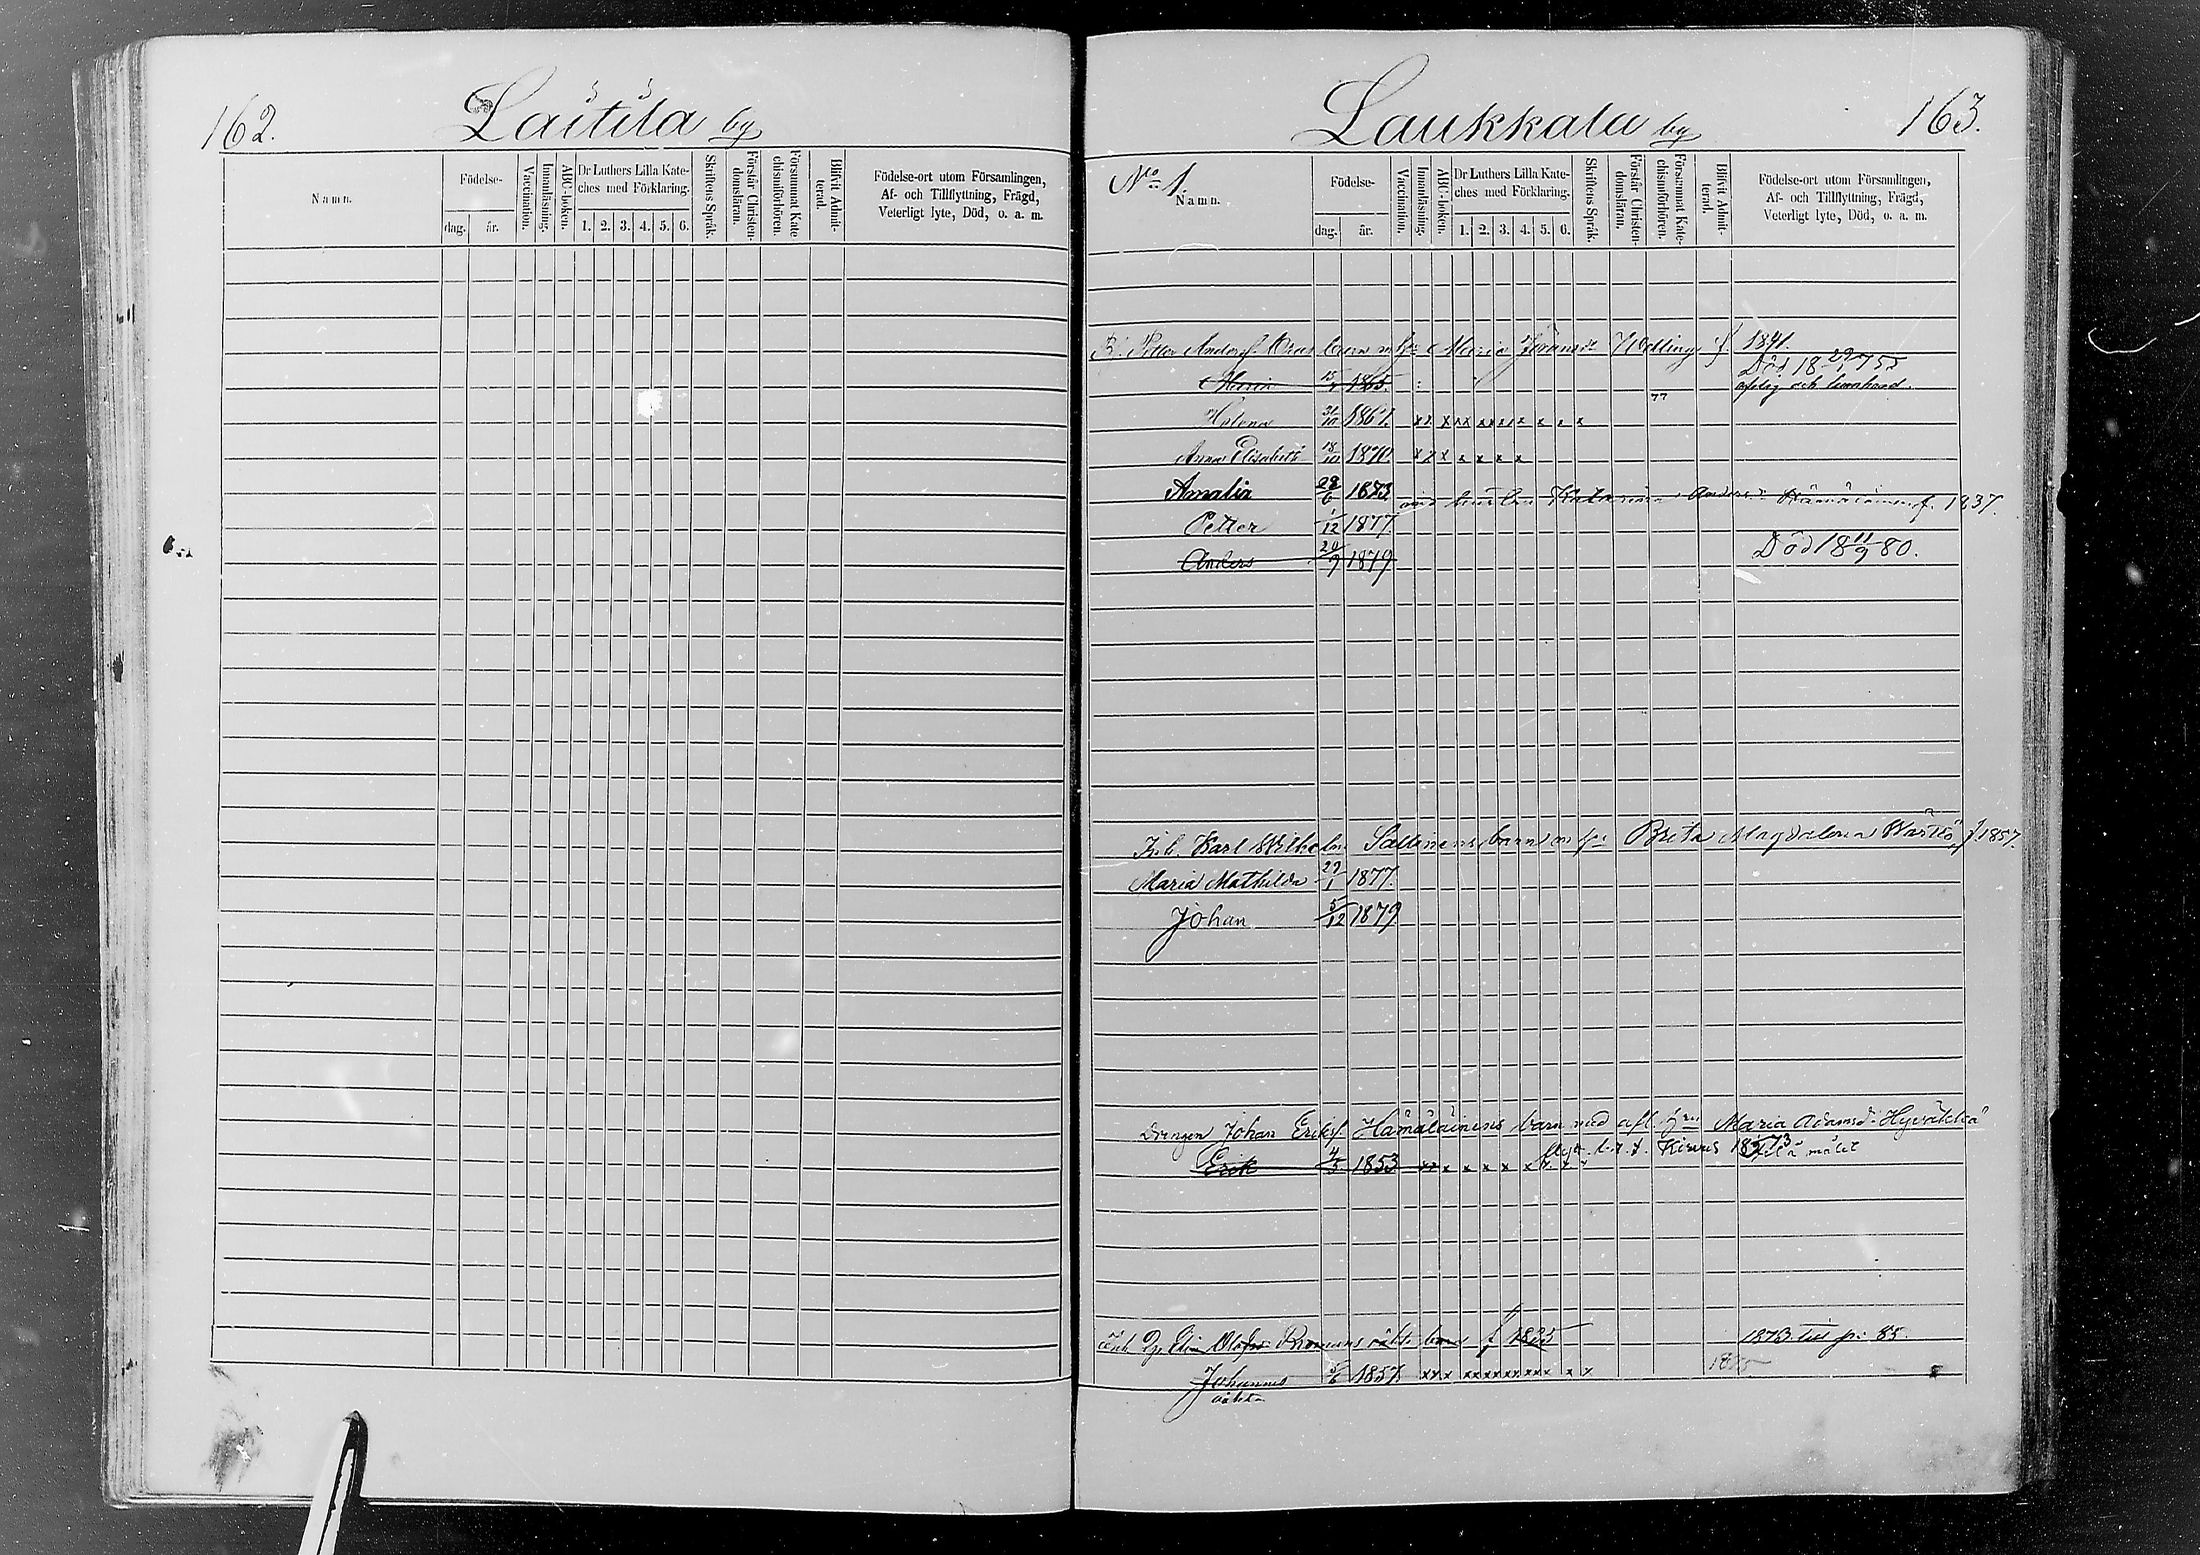 162.
Laitila by
Namn.
Födelse-
dag. år.
Vaccination.
Innanläsning.
ABC-boken.
Dr Luthers Lilla Kate-
ches med Förklaring.
1. 2. 3. 4. 5. 6.
Skriftens Språk.
Förstår Christen-
domsläran.
Försummat Kate
chismiförhören.
Blifvit Admit-
terad.
Födelse-ort utom Församlingen,
Af- och Tillflyttning, Frägd,
Veterligt lyte, Död, o. a. m.
Laukkala by
163.
No 1.
Namn.
Födelse-
dag. år.
Vaccination.
Innanläsning.
ABC-boken.
Dr Luthers Lilla Kate-
ches med Förklaring.
1. 2. 3. 4. 5. 6.
Skriftens Språk.
Förstår Christen-
domsläran.
Försummat Kate-
chismiförhören.
Blifvit Admit-
terad.
Födelse-ort utom Församlingen,
Af- och Tillflyttning, Frägd,
Veterligt lyte, Död, o. a. m.
Petter Andersf. barn m Maria f. 1841.
Maria 15 1865. Död 18 29/1 75
och
Helena 31/10 1867. x x x x x x x x x x x x x 77
Anna Elisabeth 18/10 1870. x x x x x x x
Amalia 28/6 1873 med Katarina f. 1837.
Petter 1/12 1877.
Anders 20/9 1879 Död 18 11/9 80.
Karl Wilhelm barn m Brita Magdalena f. 1857.
Maria Mathilda 29/1 1877.
Johan 5/12 1879
Drengen Johan Eriksf. Hämäläinens barn med afl. Maria Adamsd. Hyväkkä
Erik 4/3 1853 x x x x x x x x x x 1873
f 1835 1873 till p: 85.
Johannes 1857. x x x x x x x x x x x x x x 1875
äkta